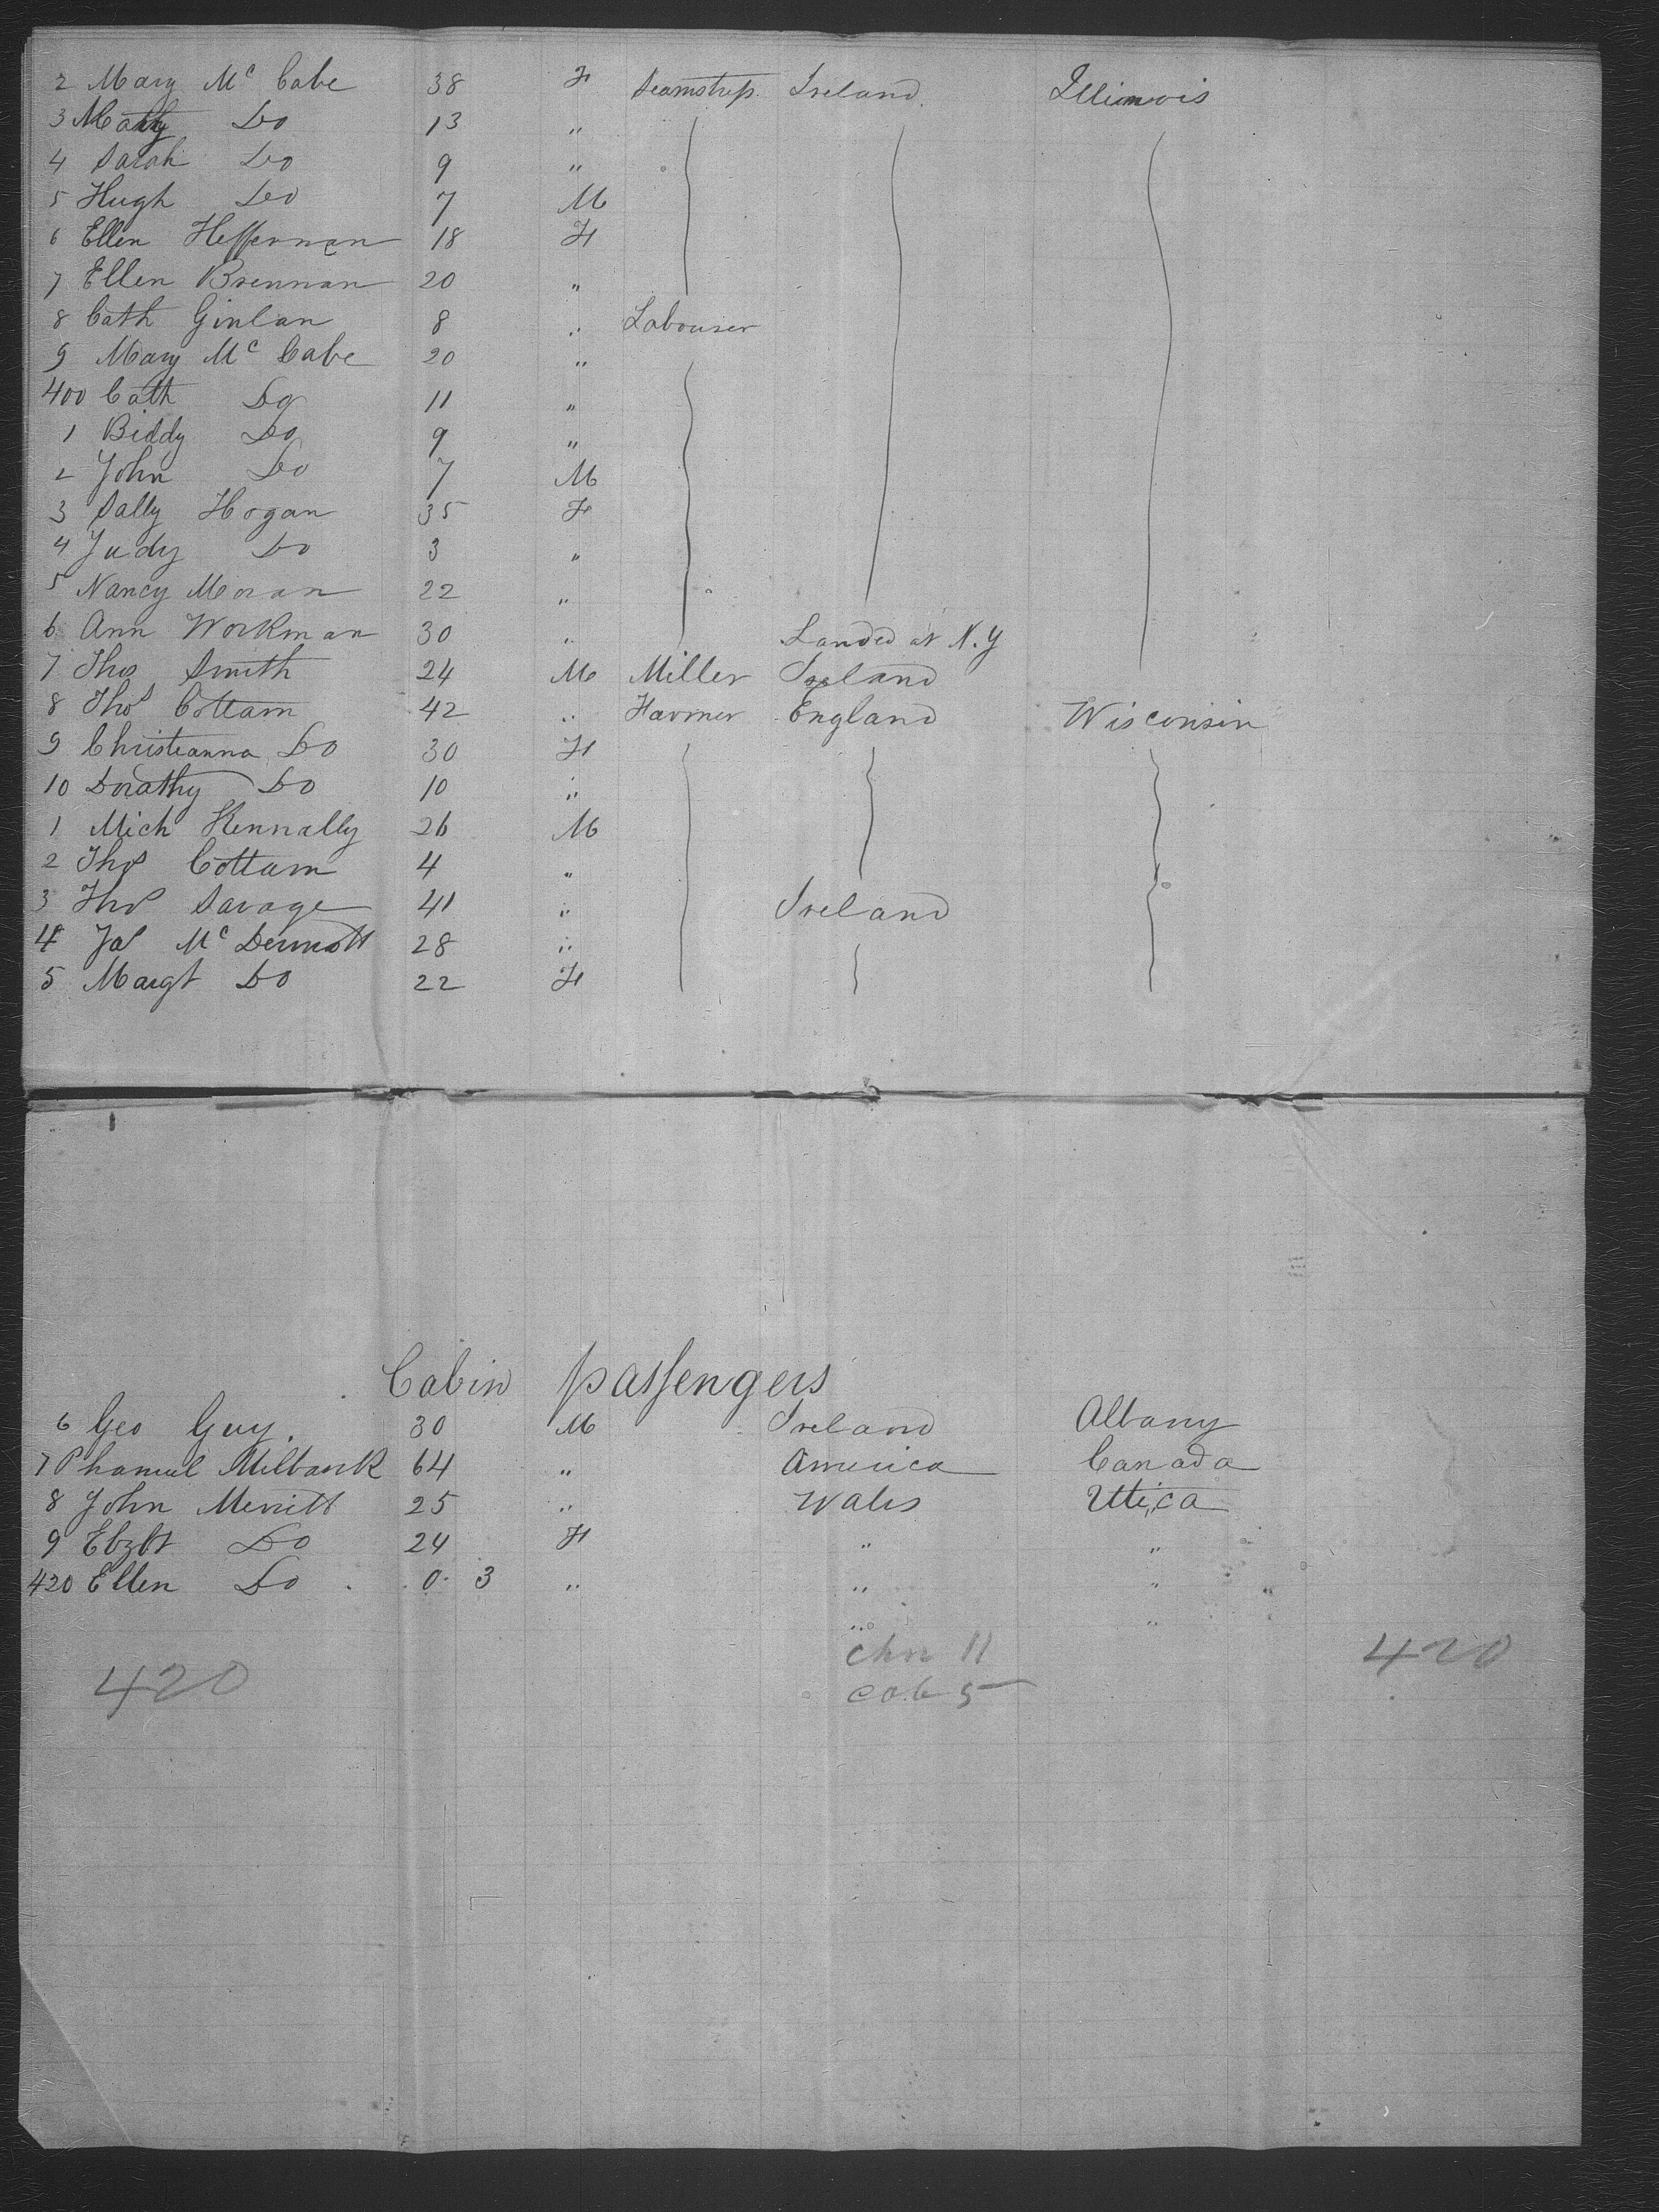 2 Mary Mc Cabe 38 F Seamstress Ireland Illinois
3 Do 13 "
4 Sarah Do 9 "
5 Hugh Do 7 M
6 Ellen Heffernan 18 F
7 Ellen Brennan 20 "
8 Cath Ginlan 8 " Labourer
9 Mary Mc Cabe 20 "
400 Cath Do 11 "
1 Biddy Do 9 "
2 John Do 7 M
3 Sally Hogan 35 F
4 Judy Do 3 "
5 Nancy Moran 22 "
6 Ann Workman 30 " Landed at N.Y
7 Thos Smith 24 M Miller Ireland
8 Thos Cottam 42 " Farmer England Wisconsin
9 Christeanna Do 30 F
10 Dorathy Do 10 "
1 Mich Kennally 26 M
2 Thos Cottam 4 "
3 Thos Savage 41 " Ireland
4 Jas Mc Dermott 28 "
5 Margt Do 22 F
Cabin passengers
6 Geo Guy. 30 M Ireland Albany
7 Milbank 64 " America Canada
8 John Merritt 25 " Wales Utica
9 Elzbt Do 24 F " "
420 Ellen Do 0. 3 " " "
" "
11
420
cab 5
420